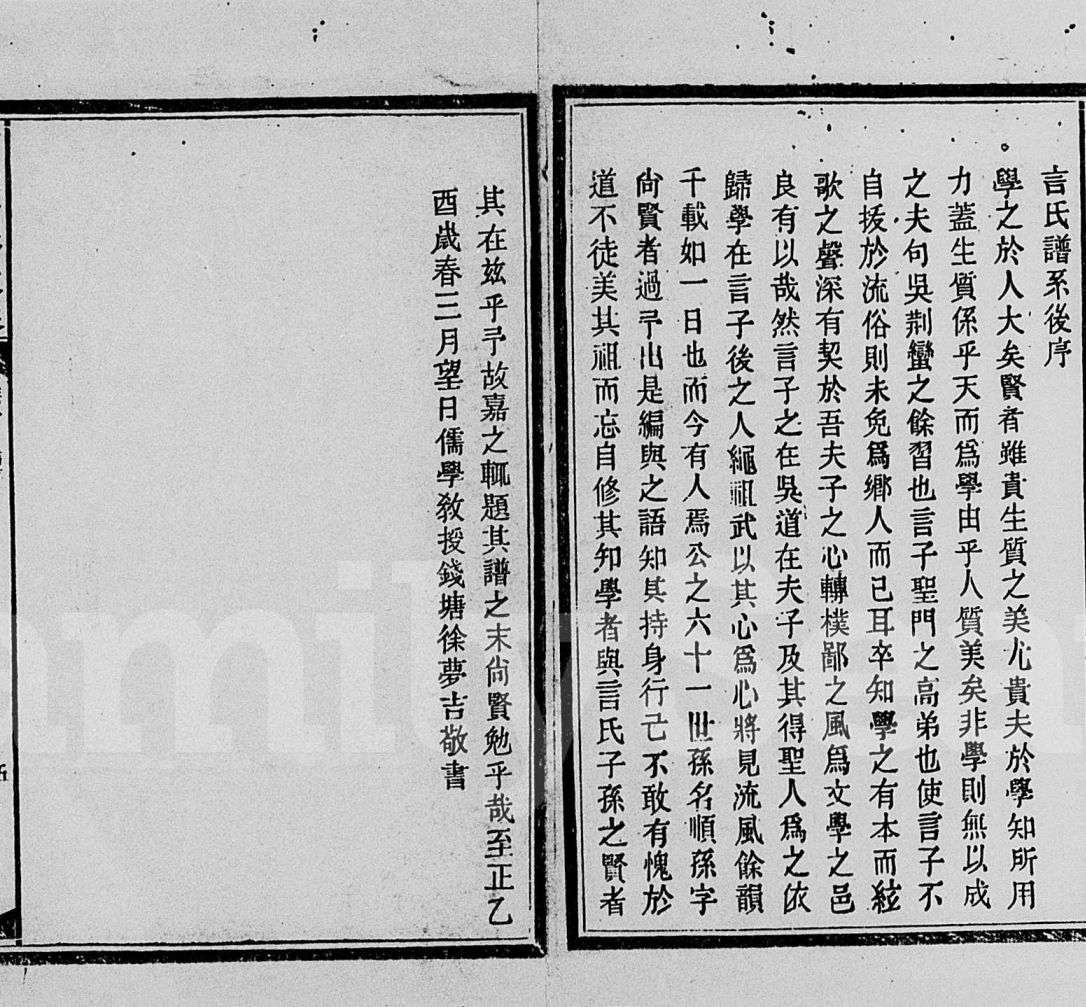 言氏譜系後序
學之於人大矣賢者雖貴生質之美尤貴夫於學知所用
力蓋生質係乎天而爲學由乎人質美矣非學則無以成
之夫句吳荆蠻之餘習也言子聖門之高弟也使言子不
自拔於流俗則未免爲鄉人而已耳卒知學之有本而絃
歌之聲深有契於吾夫子之心轉樸鄙之風爲文學之邑
良有以哉然言子之在吳道在夫子及其得聖人爲之依
歸學在言子後之人繩祖武以其心爲心將見流風餘韻
千載如一日也而今有人焉公之六十一世孫名順孫字
尙賢者過予出是編與之語知其持身行己不敢有愧於
道不徒美其祖而忘自修其知學者與言氏子孫之賢者
其在兹乎予故嘉之輒題其譜之末尙賢勉乎哉至正乙
酉歲春三月望日儒學敎授錢塘徐夢吉敬書